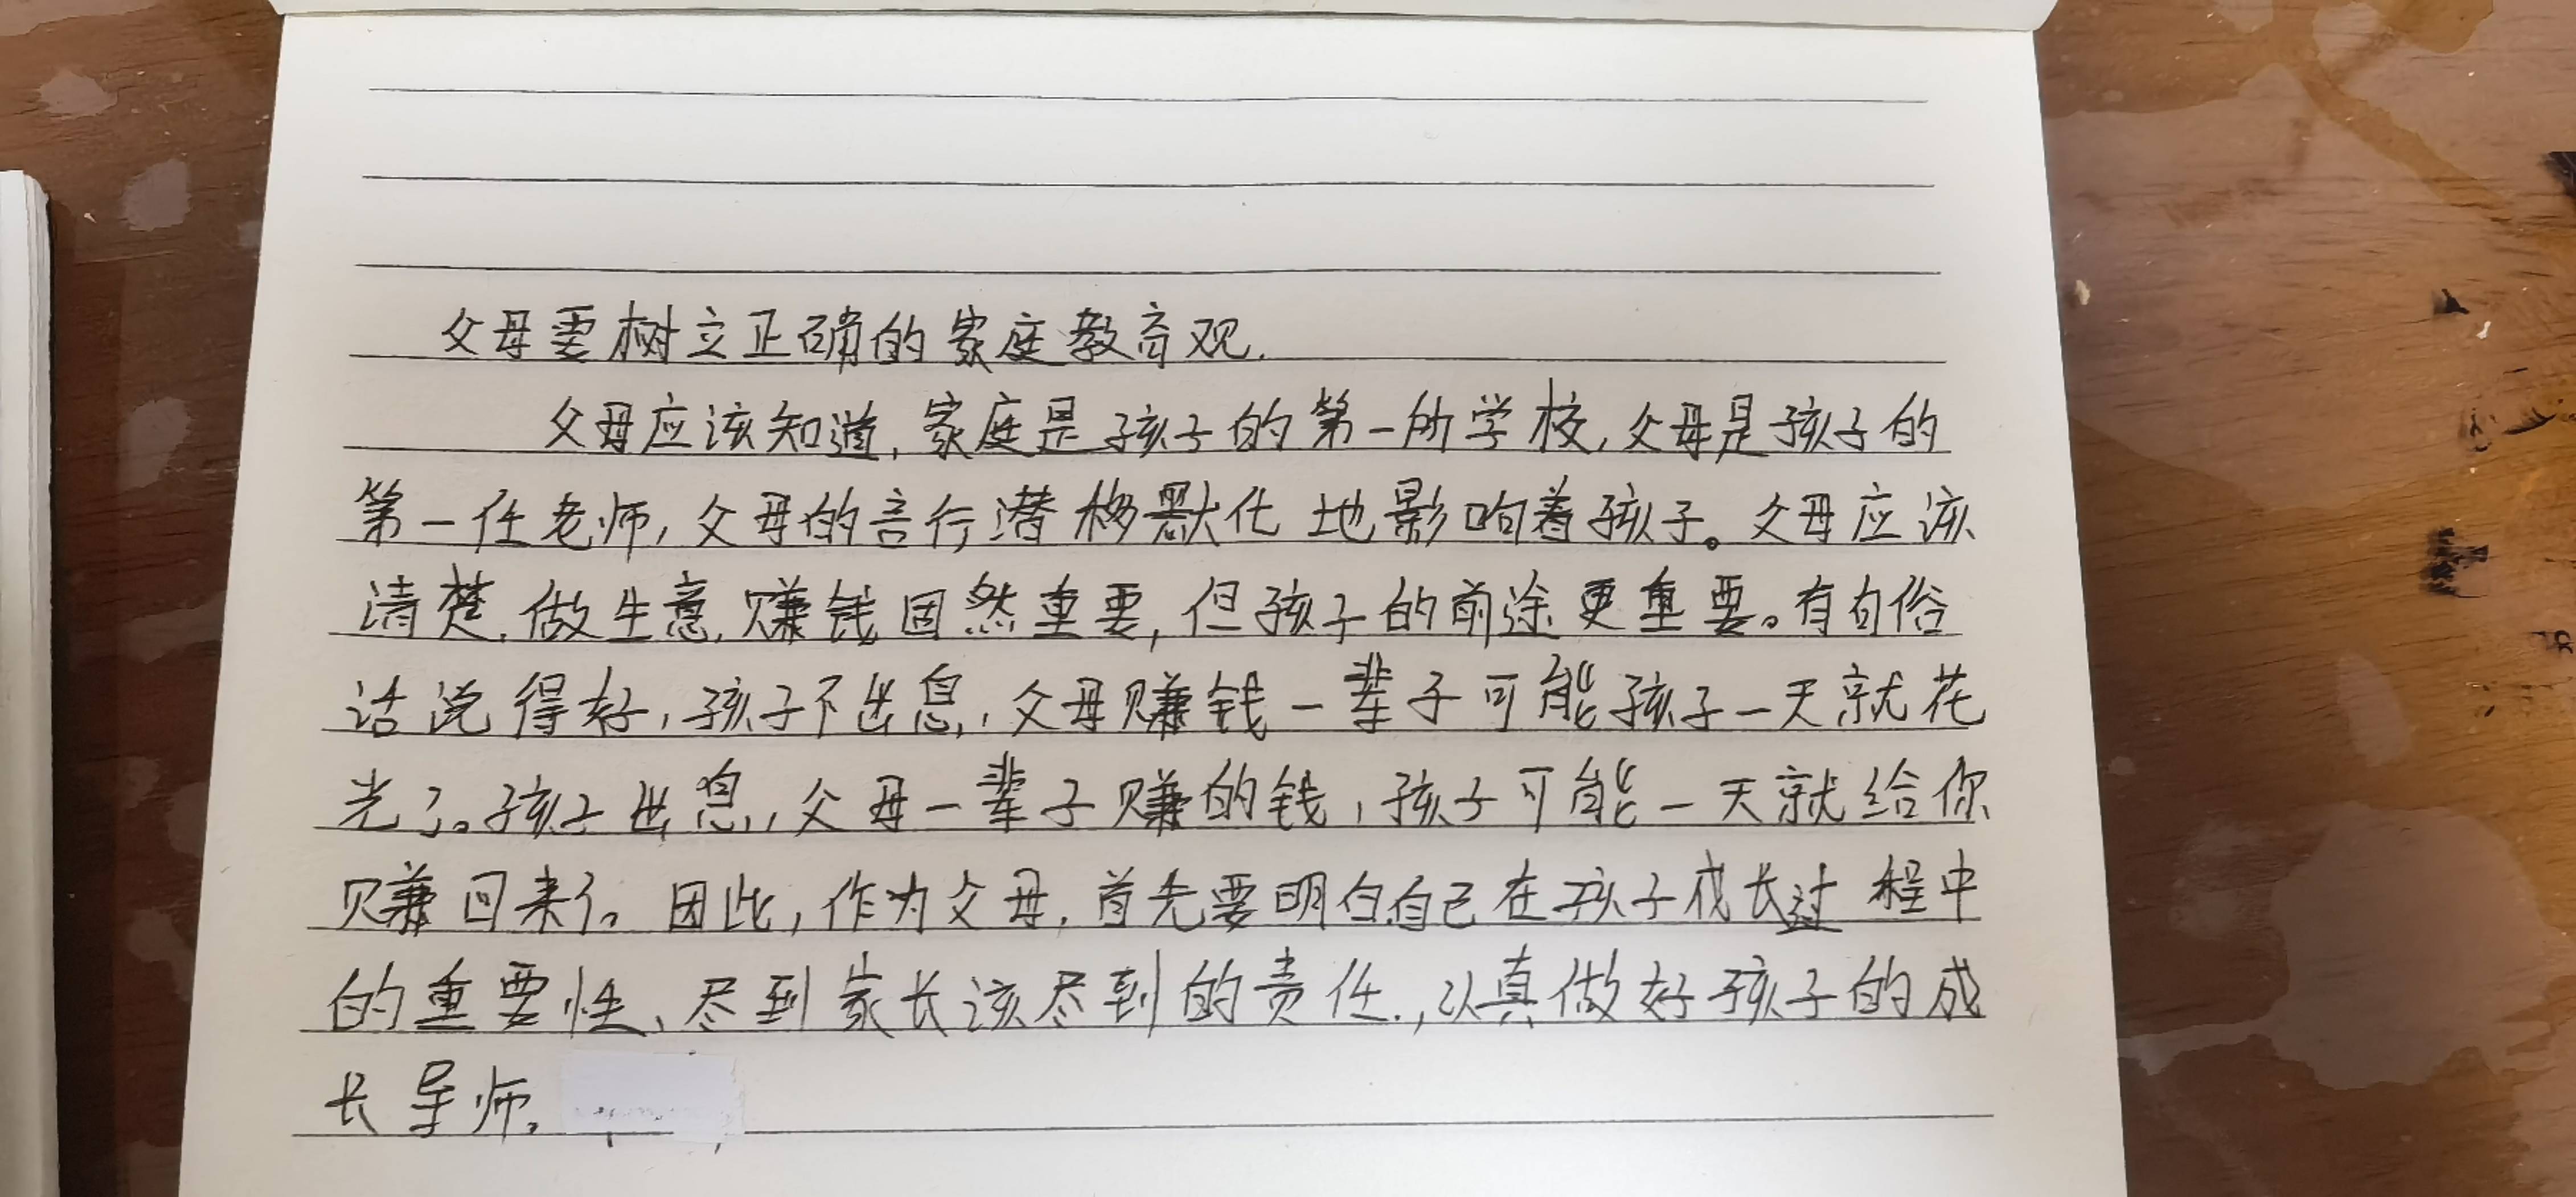 父母要树立正确的家庭教育观.
父母应该知道,家庭是孩子的第一所学校,父母是孩子的
第一任老师,父母的言行潜移默化地影响着孩子。父母应该
清楚,做生意,赚钱固然重要,但孩子的前途更重要。有句俗
话说得好,孩子不出息,父母赚钱一辈子可能孩子一天就花
光了。孩子出息,父母一辈子赚的钱,孩子可能一天就给你
赚回来了。因此,作为父母,首先要明白自己在孩子成长过程中
的重要性、尽到家长该尽到的责任.,认真做好孩子的成
长导师。